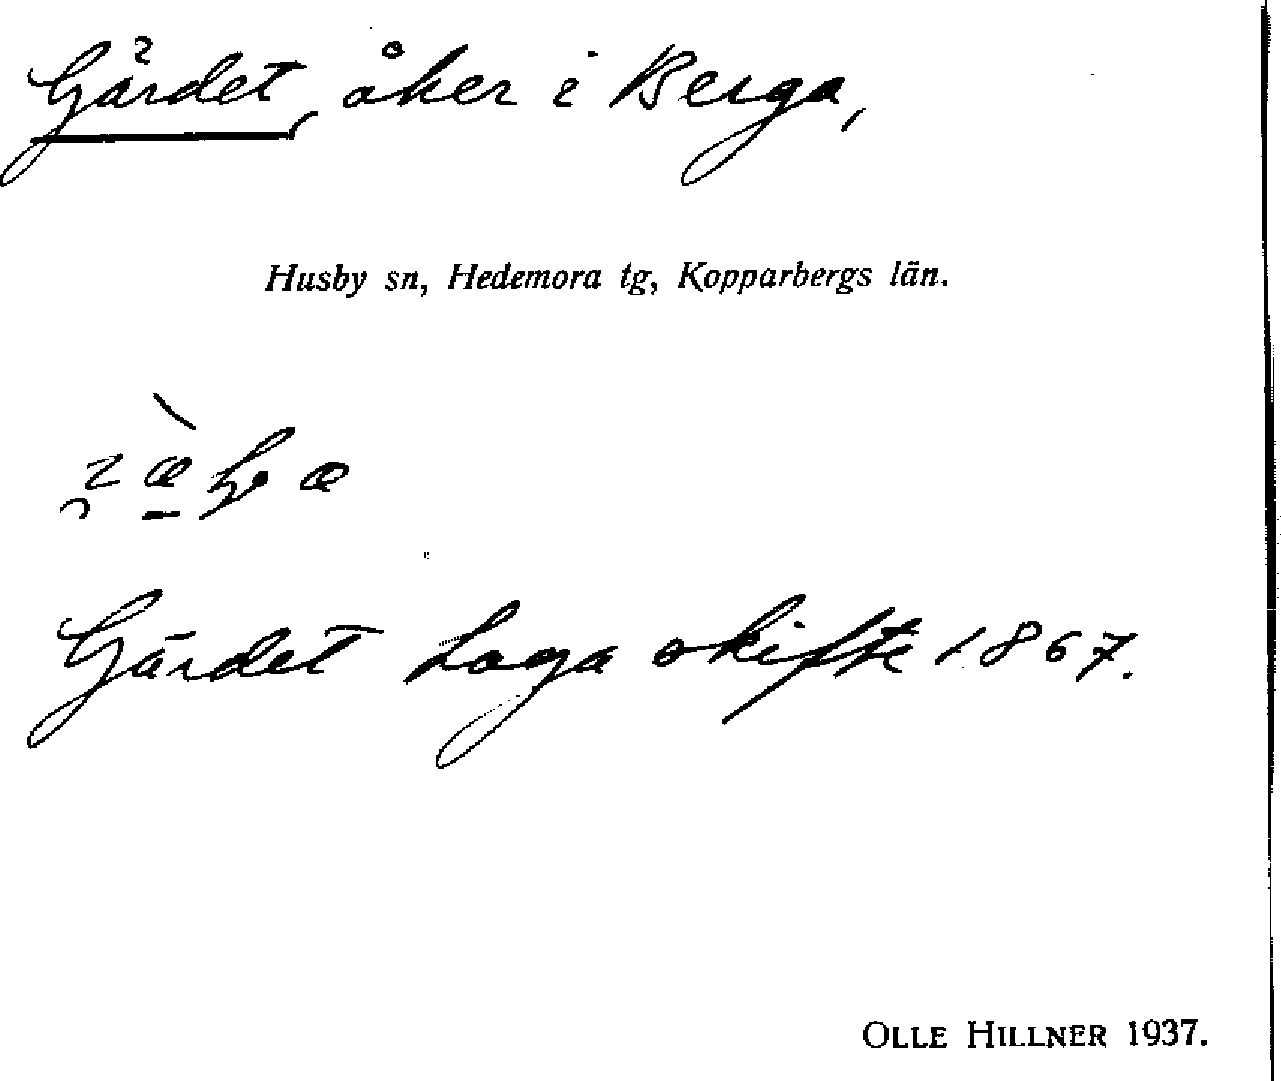 Gärdet, åker i Berga,
Husby sn, Hedemora tg, Kopparbergs län.
Gärdet Laga skifte 1867.
OLLE HILLNER 1937.